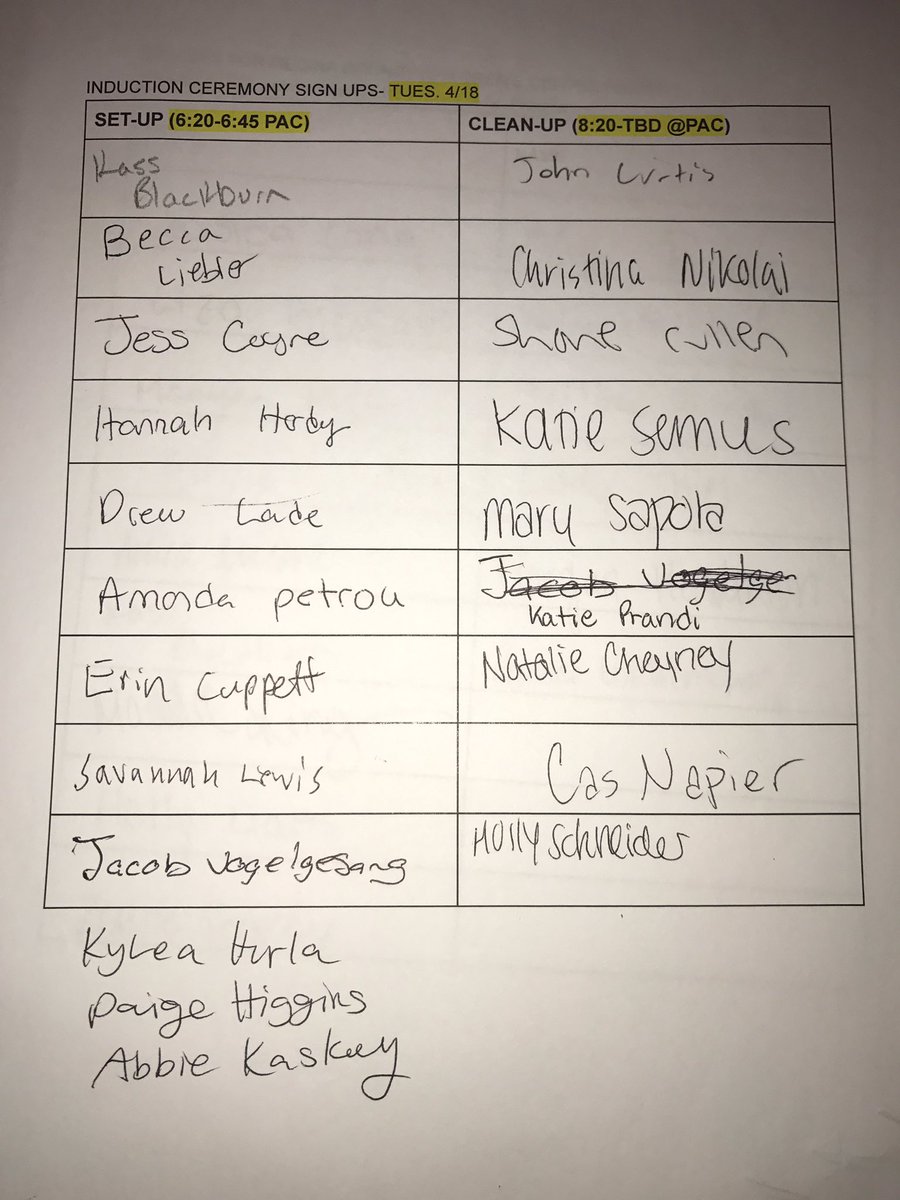 INDUCTION CEREMONY SIGN UPS- TUES. 4/18
SET-UP (6:20-6:45 PAC)
CLEAN-UP (8:20-TBD @PAC)
Kass
Blackburn
John Curtis
Becca
Liebler
Christina Nikolai
Jess Coyne
Shane Cullen
Hannah Hardy
Katie Semus
Drew Lade
Mary Sapola
Amanda petrou
Jacob Vogelge
Katie Prandi
Erin Cuppett
Natalie Cheyney
Savannah Lewis
Cas Napier
Jacob Vogelgesang
Holly Schneider
Kylea Hurla
Paige Higgins
Abbie Kaskey